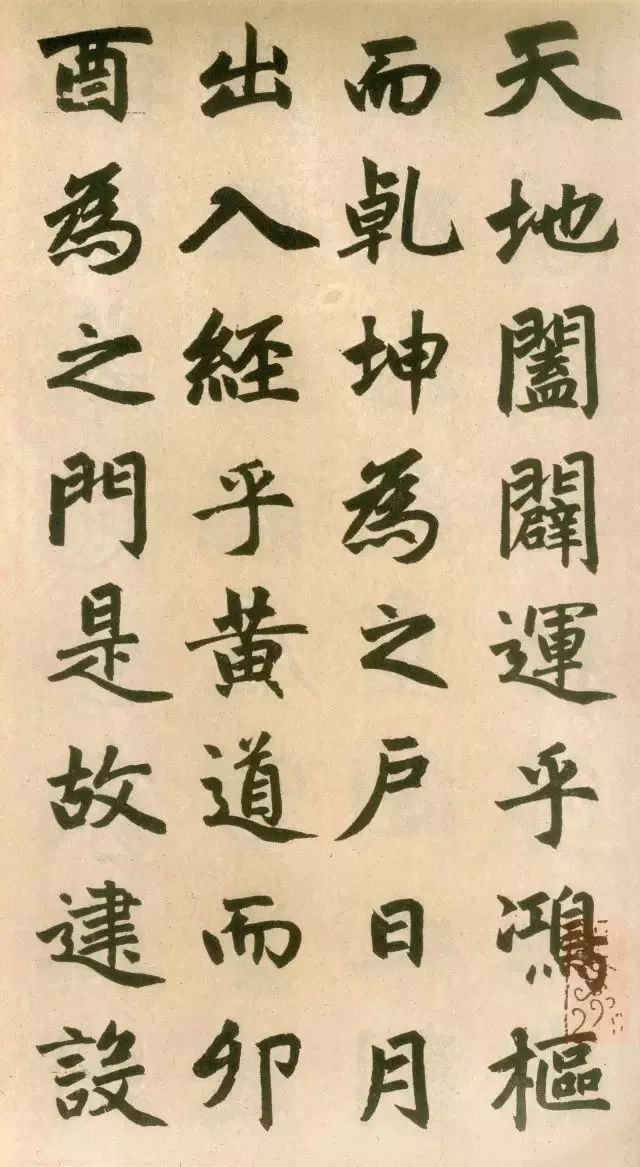 天地闔闢運乎鴻樞
而乹坤為之戶日月
出入經乎黃道而卯
酉為之門是故建設